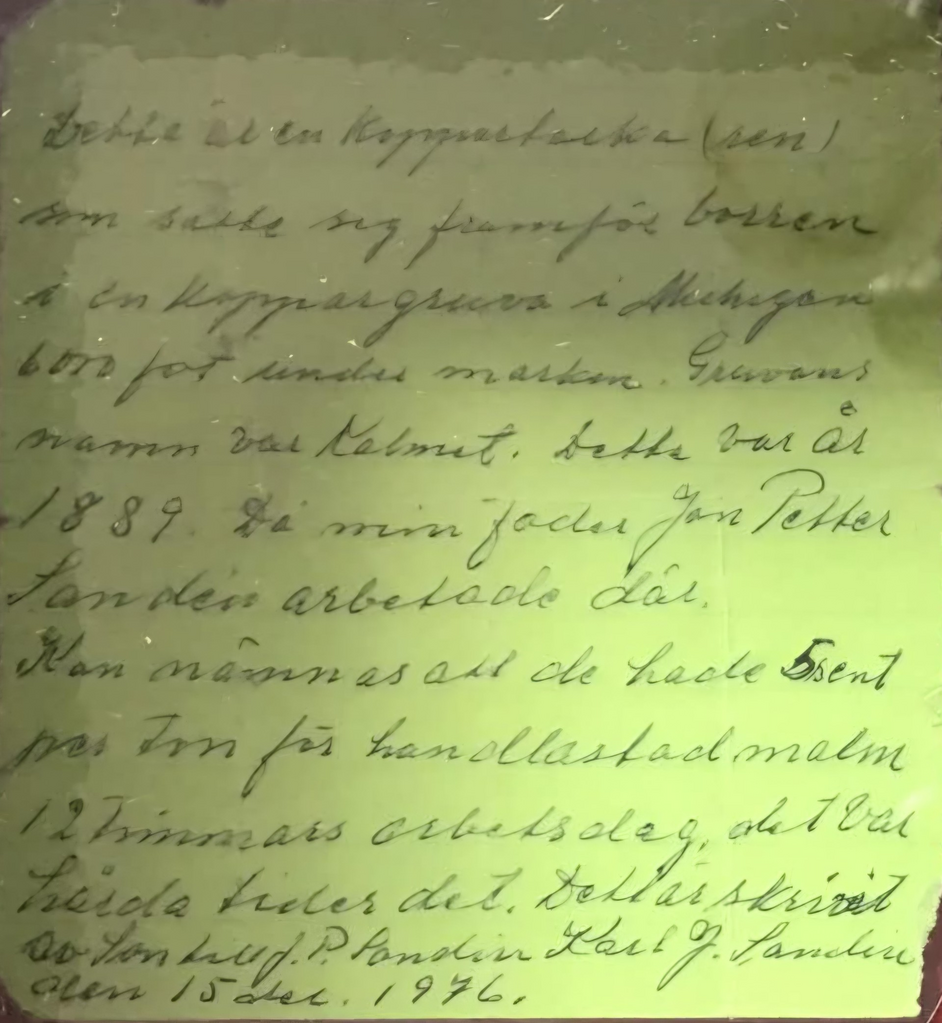 Detta är en Kopparbacka (ren)
som satte sig framför borren
i en Koppargruva i Michigan
6000 fot under marken. Gruvans
namn var Kalmet. Detta var År
1889. Då min fader Jan Petter
Sandén arbetade där.
Kan nämnas att de hade 5 sent
per Ton för handlastad malm
12 Timmars arbetsdag, det var
hårda tider det. Detta är skrivet
av Son till J. P. Sandin Karl J. Sandin
den 15 dec. 1976.